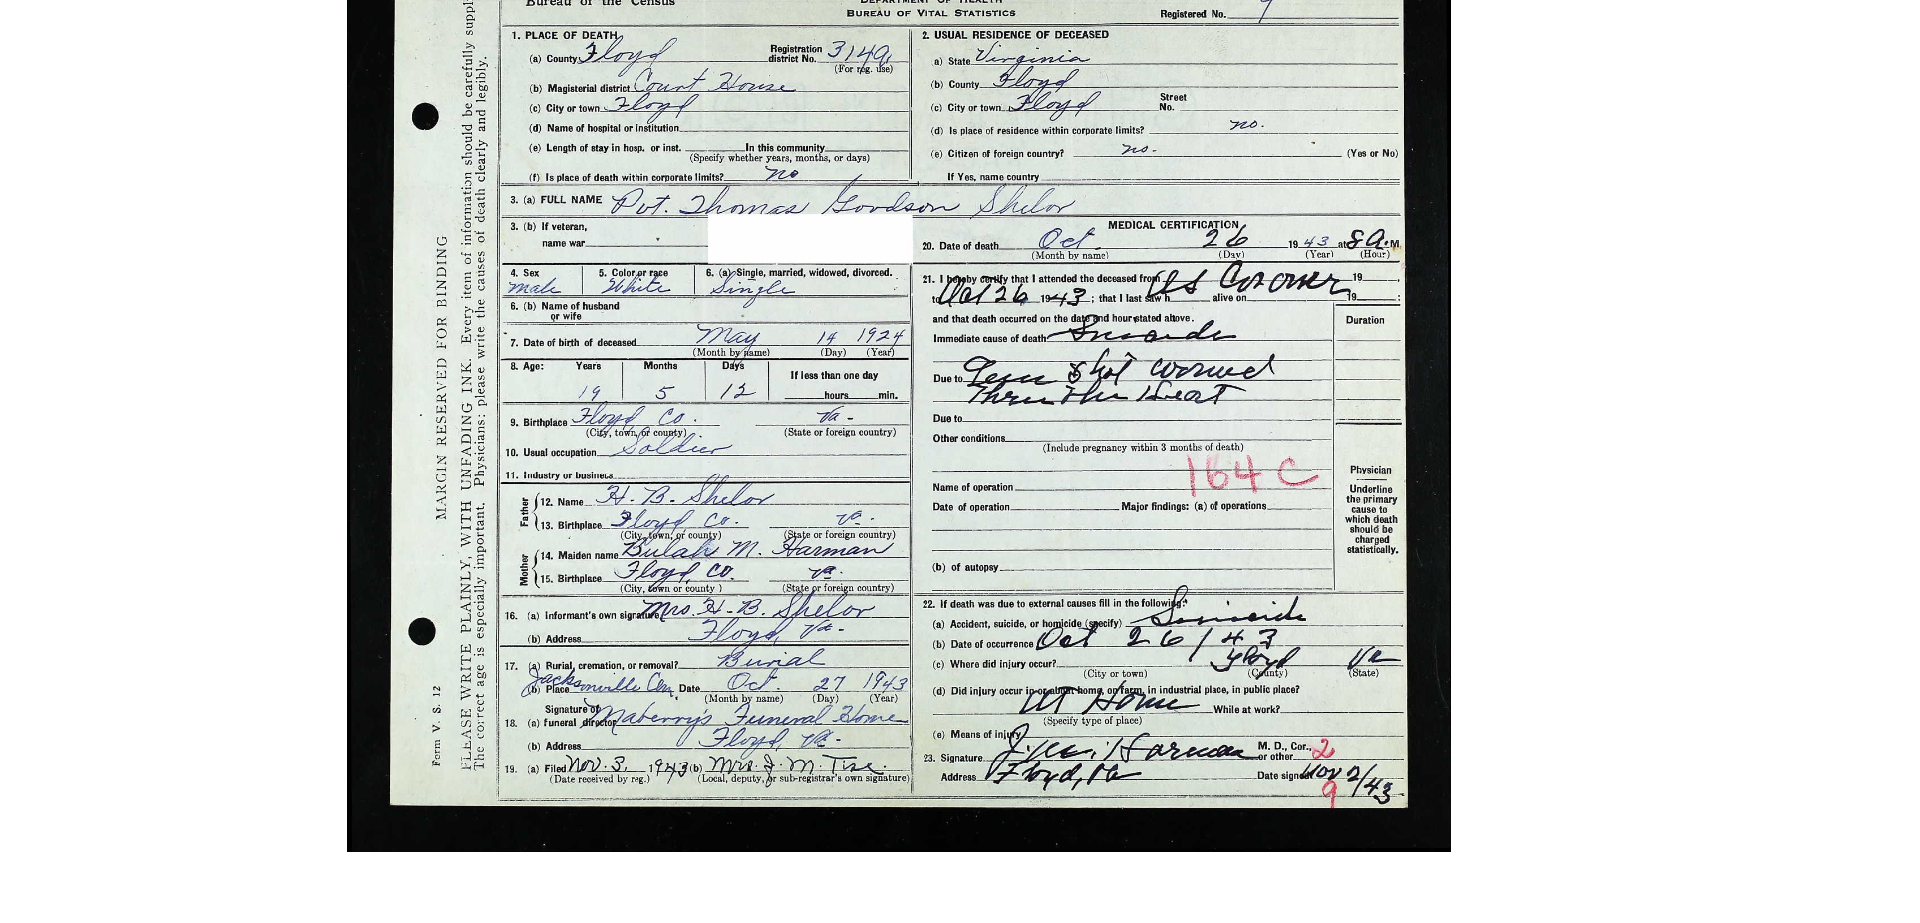 Bureau of the Census
DEPARTMENT OF HEALTH
BUREAU OF VITAL STATISTICS
Registered No. 9
MARGIN RESERVED FOR BINDING
PLEASE WRITE PLAINLY, WITH UNFADING INK. Every item of information should be carefully suppl
The correct age is especially important. Physicians: please write the causes of death clearly and legibly.
Form V. S. 12
1. PLACE OF DEATH
(a) County Floyd Registration district No. 3149
(For reg. use)
(b) Magisterial district Court House
(c) City or town Floyd
(d) Name of hospital or institution
(e) Length of stay in hosp. or inst. In this community
(Specify whether years, months, or days)
(f) Is place of death within corporate limits? no
2. USUAL RESIDENCE OF DECEASED
a) State Virginia
(b) County Floyd
(c) City or town Floyd Street No.
(d) Is place of residence within corporate limits? no.
(e) Citizen of foreign country? no. (Yes or No)
If Yes, name country
3. (a) FULL NAME Pvt. Thomas Goodson Shelor
3. (b) If veteran,
name war
4. Sex 5. Color or race 6. (a) Single, married, widowed, divorced.
male White Single
6. (b) Name of husband
or wife
7. Date of birth of deceased May 14 1924
(Month by name) (Day) (Year)
8. Age: Years Months Days If less than one day
19 5 12 hours min.
9. Birthplace Floyd Co. Va-
(City, town, or county) (State or foreign country)
10. Usual occupation Soldier
11. Industry or business
Father
12. Name H. B. Shelor
13. Birthplace Floyd Co. Va.
(City, town, or county) (State or foreign country)
Mother
14. Maiden name Bulah M. Harman
15. Birthplace Floyd Co. Va.
(City, town or county ) (State or foreign country)
16. (a) Informant's own signature Mrs. H. B. Shelor
(b) Address Floyd, Va-
17. (a) Burial, cremation, or removal? Burial
(b) Place Jacksonville Cem. Date Oct. 27 1943
(Month by name) (Day) (Year)
Signature of
18. (a) funeral director Maberry's Funeral Home
(b) Address Floyd, Va-
19. (a) Filed Nov. 3, 1943 (b) Mrs. J. M. Tise.
(Date received by reg.) (Local, deputy, or sub-registrar's own signature)
MEDICAL CERTIFICATION
20. Date of death Oct. 26 1943 at 8 A. M.
(Month by name) (Day) (Year) (Hour)
21. I hereby certify that I attended the deceased from As Coroner 19
to Oct 26 1943 ; that I last saw h alive on 19 :
and that death occurred on the date and hour stated above.
Duration
Immediate cause of death Suicide
Due to Gun Shot wound
Thru The Heart
Due to
Other conditions
(Include pregnancy within 3 months of death)
164 C
Name of operation
Date of operation Major findings: (a) of operations
(b) of autopsy
Physician
Underline
the primary
cause to
which death
should be
charged
statistically.
22. If death was due to external causes fill in the following:
(a) Accident, suicide, or homicide (specify) Suicide
(b) Date of occurrence Oct 26/43
(c) Where did injury occur? Floyd Va
(City or town) (County) (State)
(d) Did injury occur in or about home, on farm, in industrial place, in public place?
At Home While at work?
(Specify type of place)
(e) Means of injury
23. Signature Harman M. D., Cor., or other 2
Address Floyd, Va Date signed Nov 2/43
9